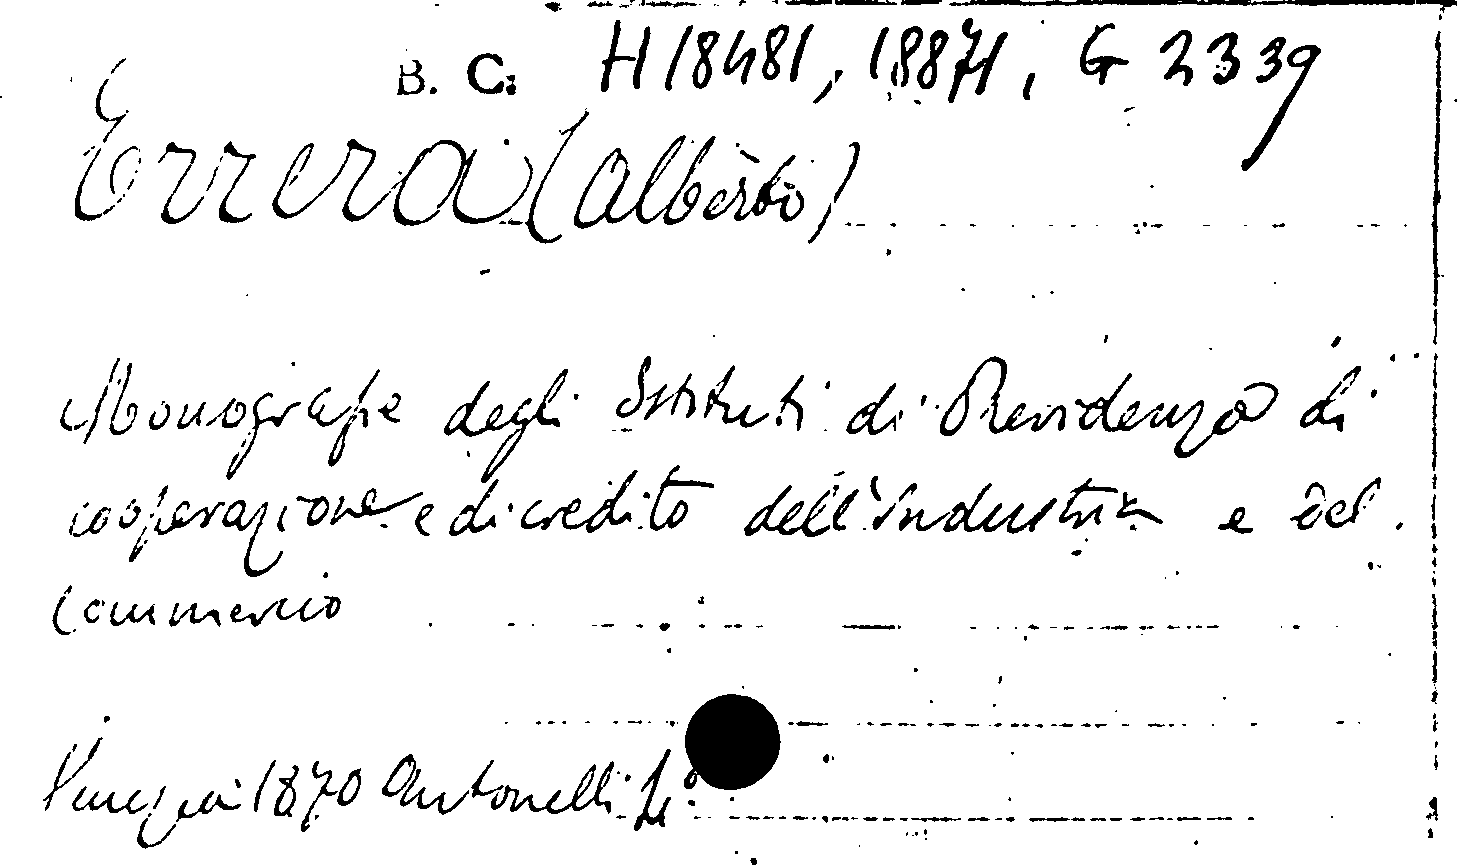 B. C. H 18481, 18871, G 2339
Errera (Alberto)
Monografie degli Istituti di Previdenza di
cooperazione e di credito dell'Industria e del
Commercio
Venezia 1870 Antonelli